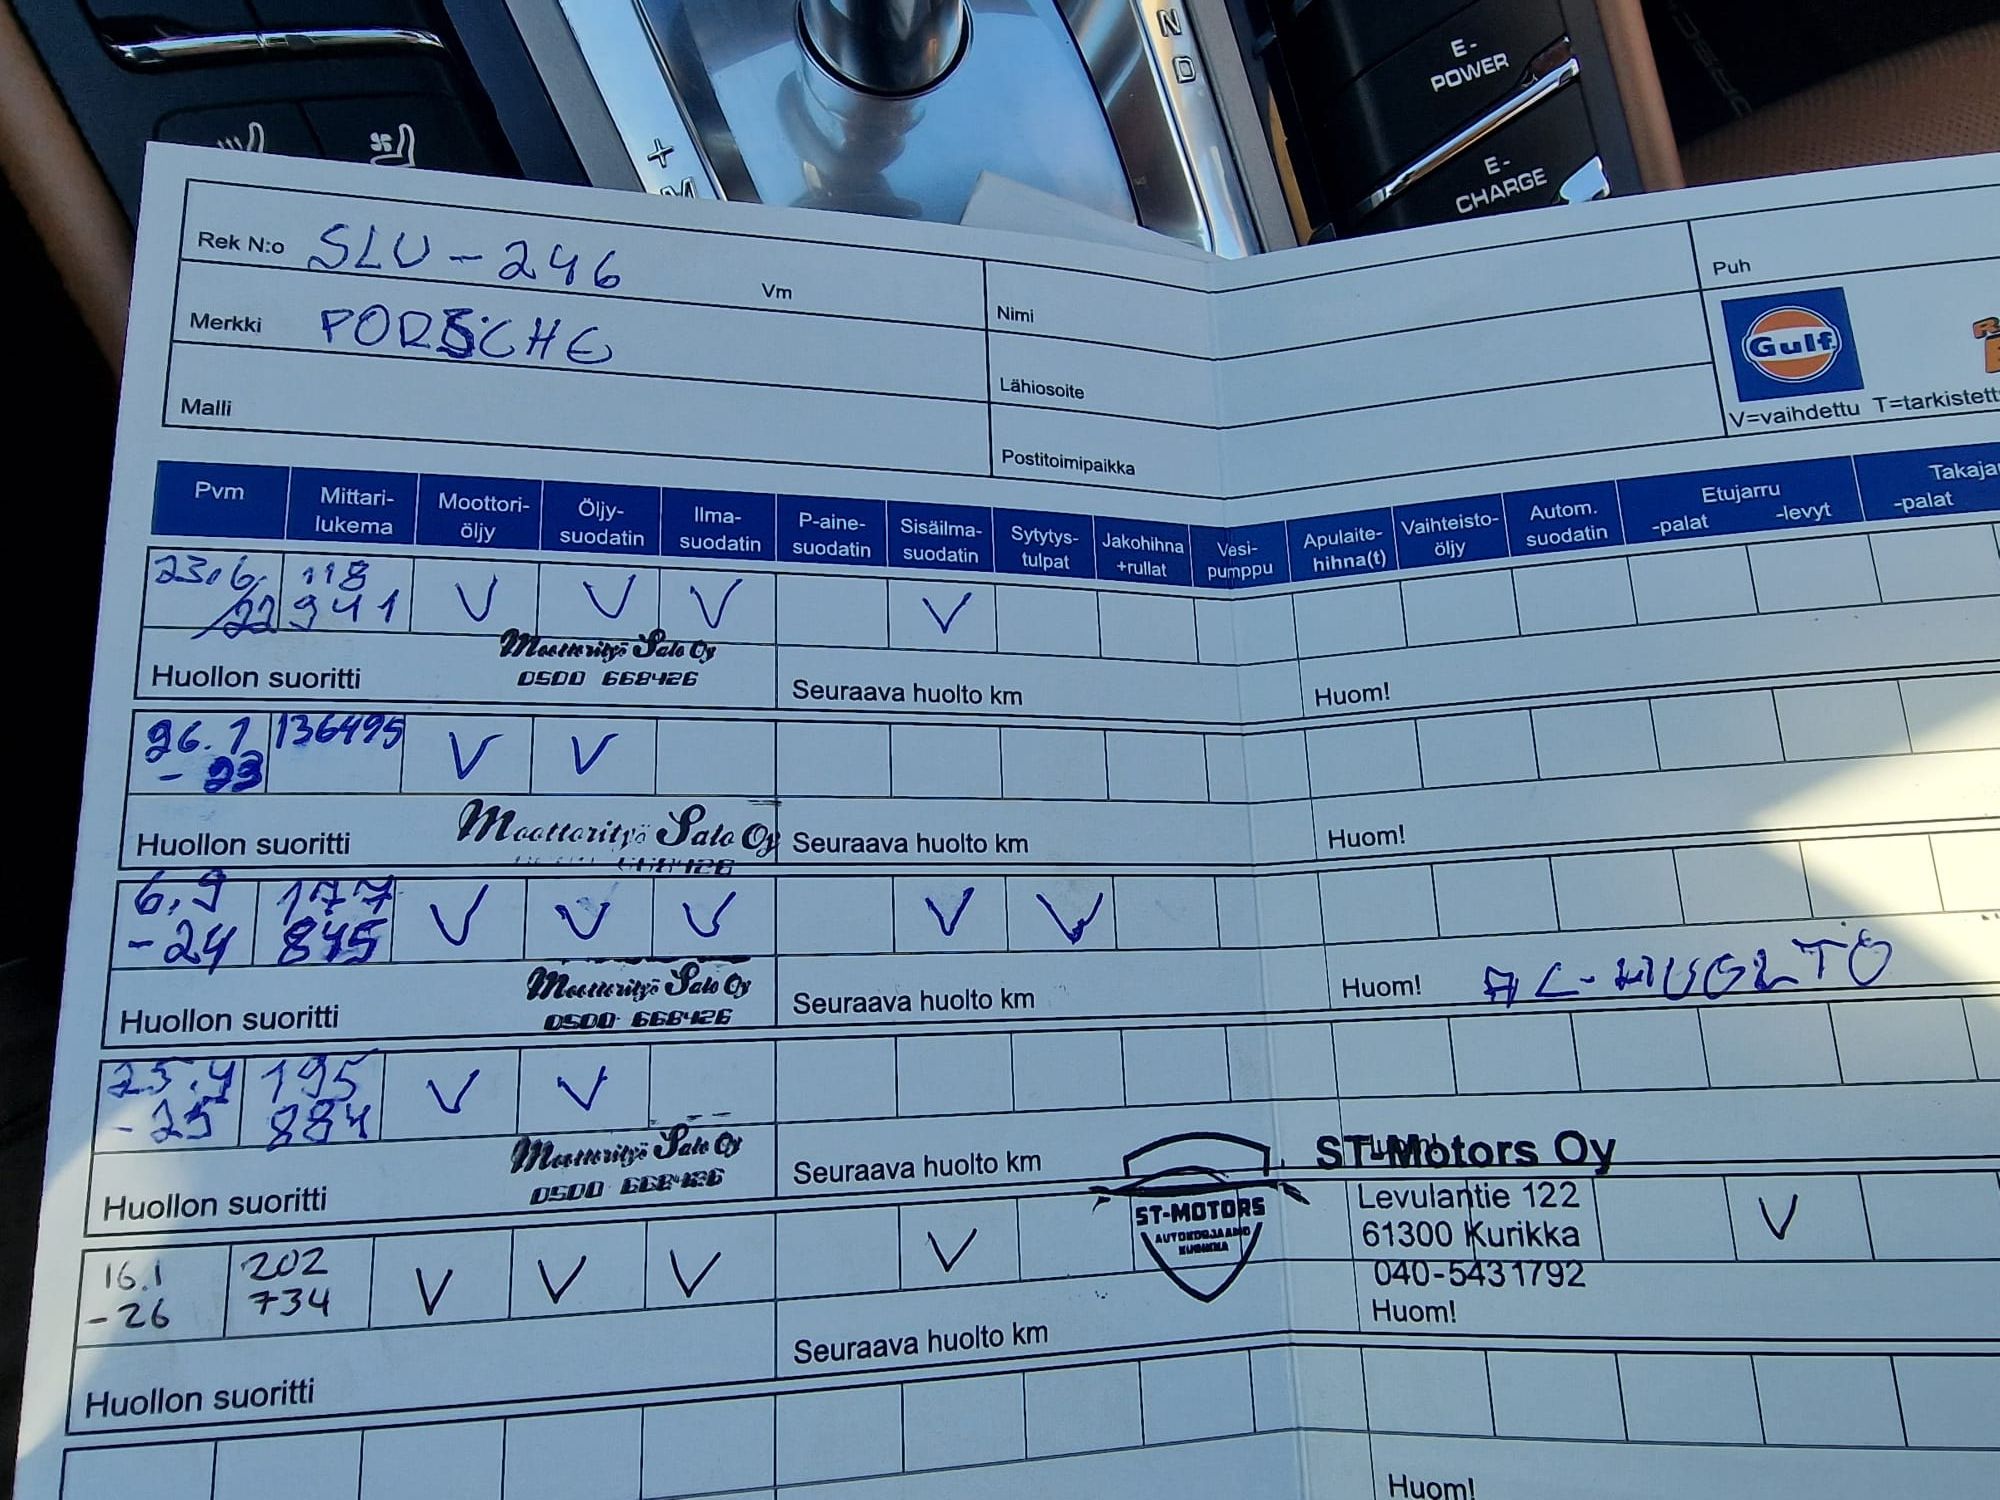 N
D
E-
POWER
E-
CHARGE
+
M
Rek N:o SLU-246 Vm
Merkki PORSCHE
Malli
Nimi
Lähiosoite
Postitoimipaikka
Puh
Gulf
V=vaihdettu T=tarkistett
Pvm Mittari-lukema Moottori-öljy Öljy-suodatin Ilma-suodatin P-aine-suodatin Sisäilma-suodatin Sytytys-tulpat Jakohihna +rullat Vesi-pumppu Apulaite-hihna(t) Vaihteisto-öljy Autom. suodatin Etujarru -palat -levyt Takajar -palat
23.6. 118 V V V V
/22 941
Moottorityö Salo Oy
0500 668426
Huollon suoritti Seuraava huolto km Huom!
26.1 136495 V V
- 23
Moottorityö Salo Oy
668426
Huollon suoritti Seuraava huolto km Huom!
6.9 177 V V V V V
-24 845
Moottorityö Salo Oy
0500 668426
Huollon suoritti Seuraava huolto km Huom! AC-HUOLTO
25.4 195 V V
-25 884
Moottorityö Salo Oy
0500 668426
Huollon suoritti Seuraava huolto km
ST-Motors Oy
Levulantie 122
61300 Kurikka
040-5431792
ST-MOTORS
AUTOKORJAAMO
KURIKKA
16.1 202 V V V V V
-26 734
Huollon suoritti Seuraava huolto km Huom!
Huom!